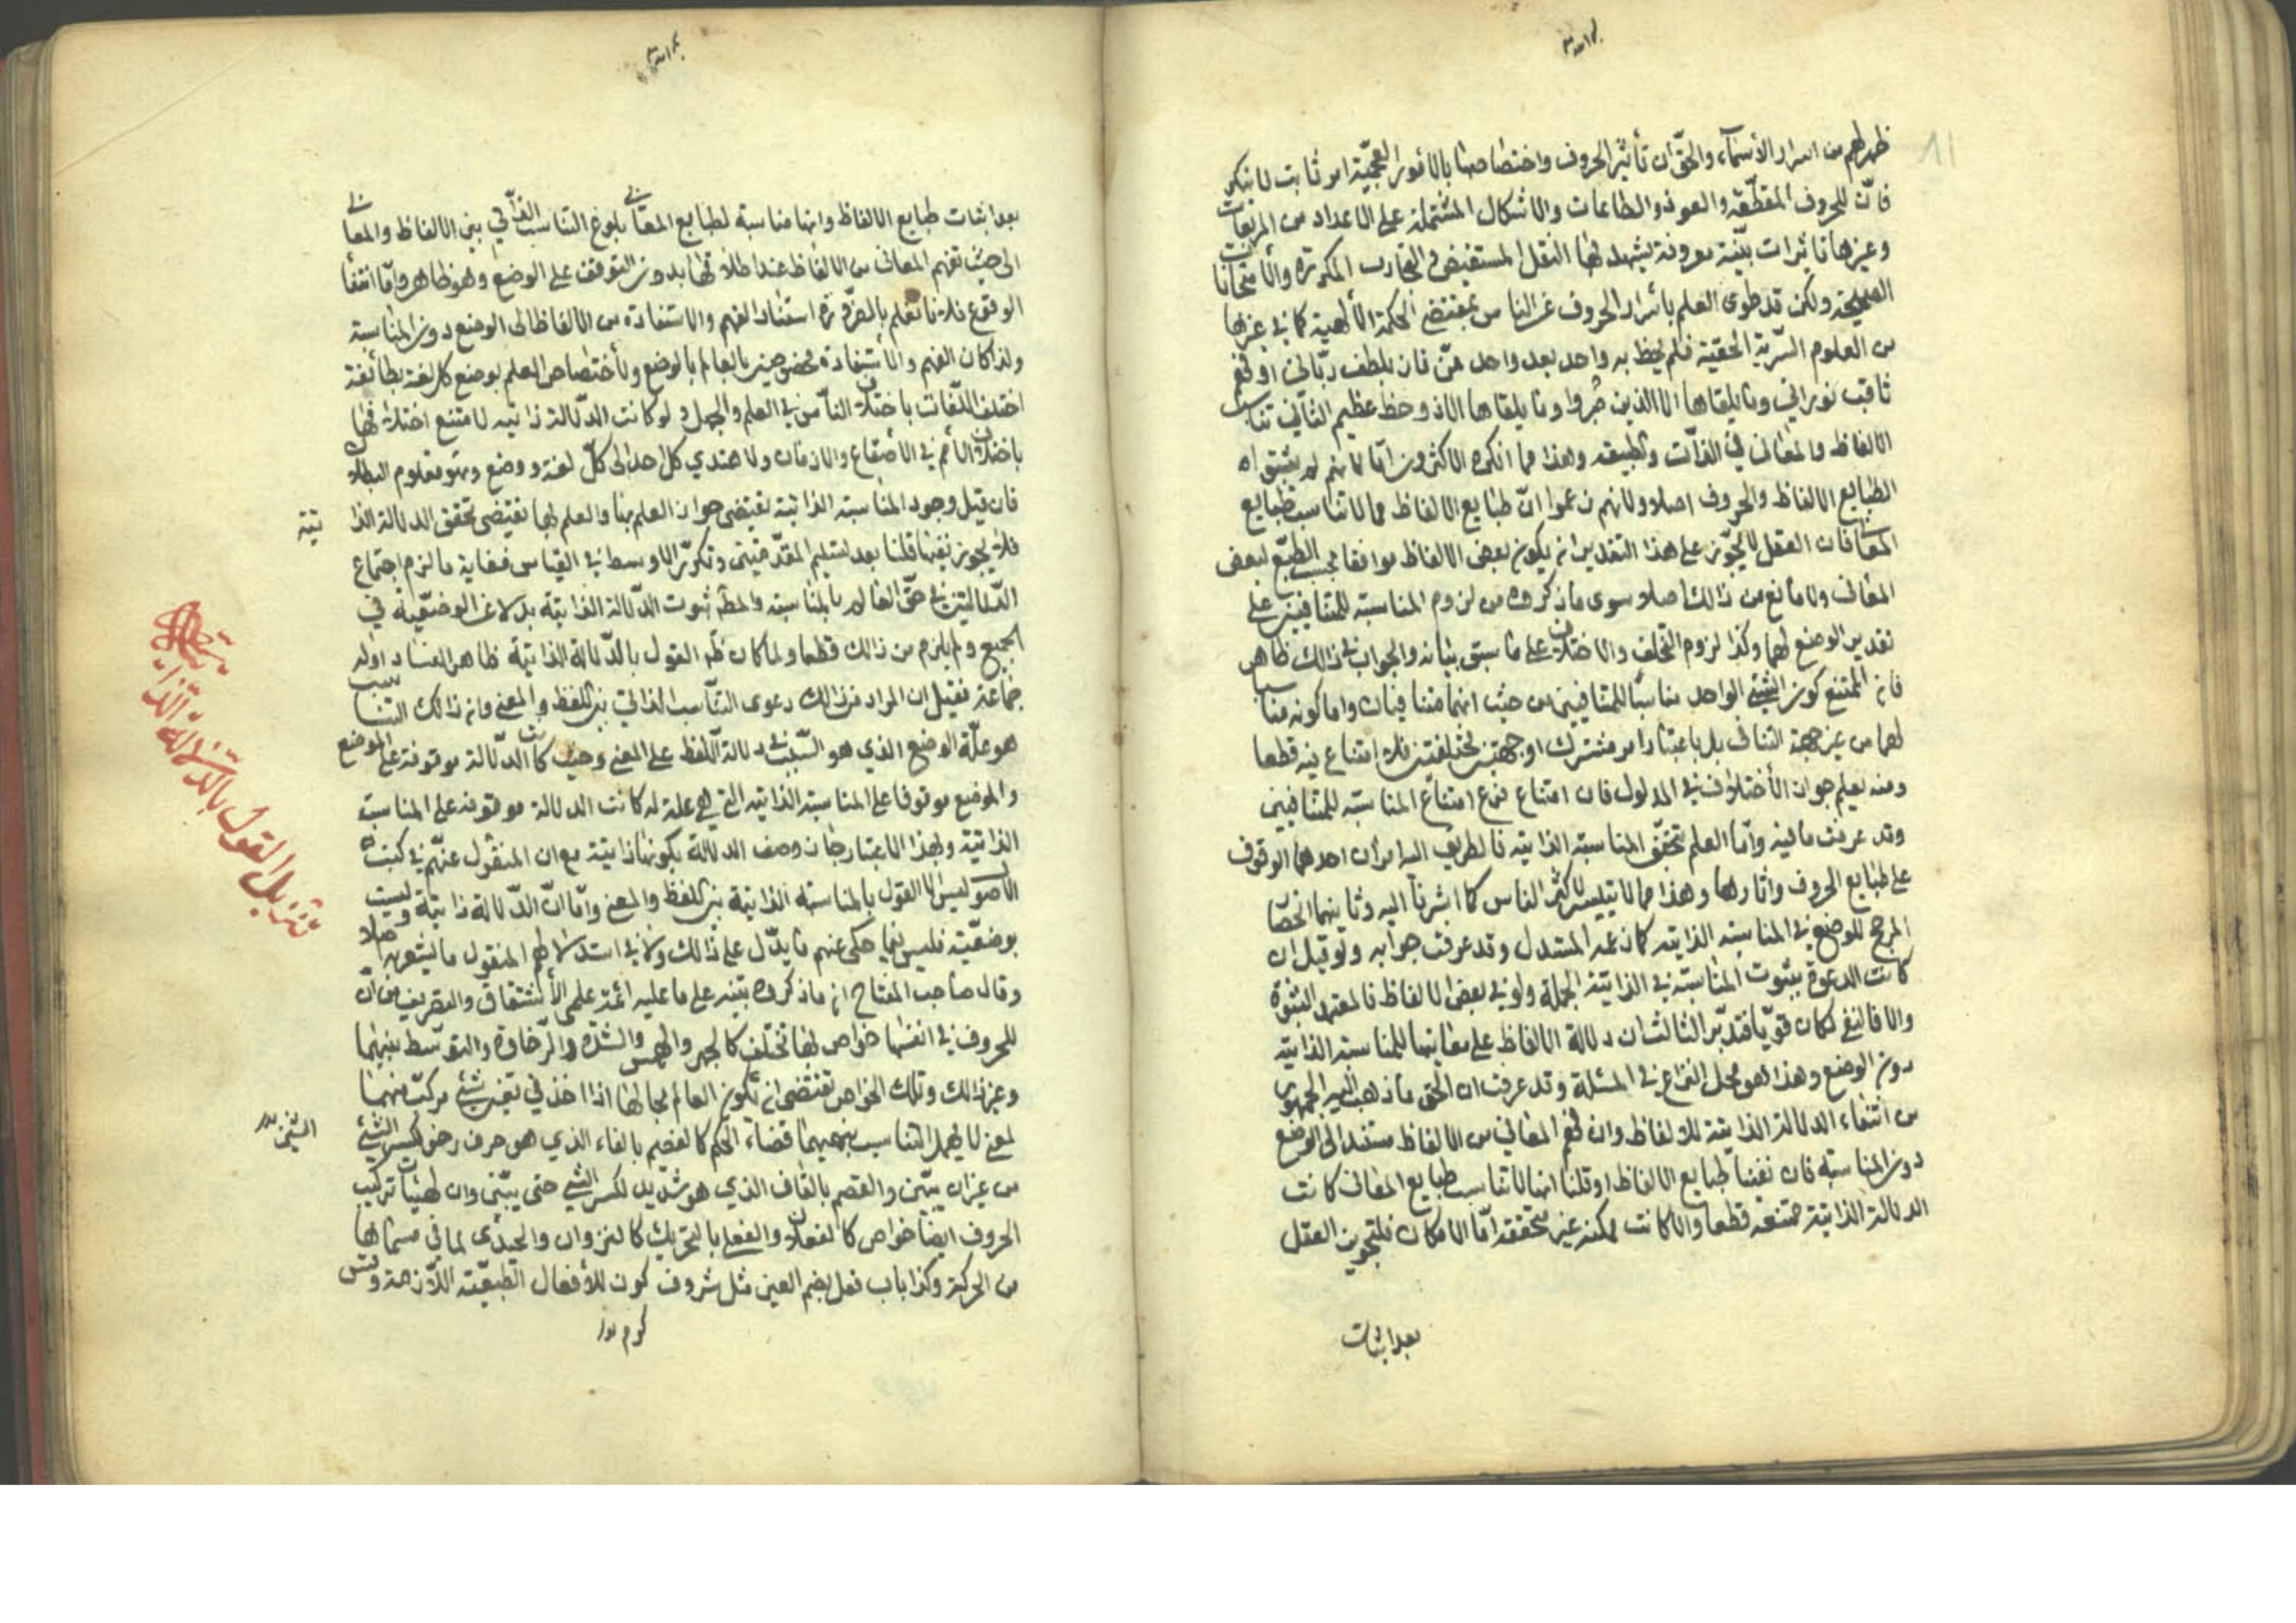 ظهر لهم من اسرار الأسماء والحق ان تأثير الحروف واختصاصها بالأمور العجيبة امر ثابت لا ينكر
فان للحروف المقطعة والعوذ والطلسمات والاشكال المشتملة على الاعداد من المربعات
وغيرها تاثيرات بينة معروفة يشهد لها النقل المستفيض والتجارب المكررة والامتحانات
الصحيحة ولكن قد طوى العلم بأسرار الحروف عن الناس بمقتضى الحكمة الألهية كما في غيرها
من العلوم السرية الحقية فلم يحظ به واحد بعد واحد ممن فاز بلطف رباني او فهم
ثاقب نوراني وما يلقاها الا الذين صبروا وما يلقاها الا ذو حظ عظيم الثاني تناسب
الالفاظ والمعاني في الذات والطبيعة وهذا مما انكره الاكثرون اما لانهم لم يثبتوا
الطبايع الالفاظ والحروف اصلا ولانهم زعموا ان طبايع الالفاظ مما لا تناسب طبايع
المعاني فان العقل لا يجوز على هذا التقدير ان يكون بعض الالفاظ موافقا بحسب الطبع لبعض
المعاني ولا مانع من ذالك اصلا سوى ما ذكروه من لزوم المناسبة للمتنافيين على
تقدير الوضع لهما وكذا لزوم التخلف والاختلاف على ما سبق بيانه والجواب في ذالك ظاهر
فان الممتنع كون الشيئ الواحد مناسبا للمتنافيين من حيث انهما متنافيان واما كونه مناسبا
لهما من غير جهة التنافي بل باعتبار امر مشترك او جهتين مختلفتين فلا امتناع فيه قطعا
ومنه يعلم جواز الأختلاف في المدلول فان امتناع فرع امتناع المناسبة للمتنافيين
وقد عرفت ما فيه واما العلم بتحقق المناسبة الذاتية فالطريق اليه امران احدهما الوقوف
على طبايع الحروف واثارها وهذا مما لا يتيسر لاكثر الناس كما اشرنا اليه وثانيهما انحصار
المرجح للوضع في المناسبة الذاتية كما زعمه المستدل وقد عرفت جوابه ولو قيل ان
كانت الدعوة بثبوت المناسبة في الذاتية الجملة ولو في بعض الالفاظ فالمعتمد الثبوت
والا فالنفي لكان قويا فتدبر الثالث ان دلالة الالفاظ على معانيها للمناسبة الذاتية
دون الوضع وهذا هو محل النزاع في المسئلة وقد عرفت ان الحق ما ذهب اليه الجمهور
من انتفاء الدلالة الذاتية للالفاظ وان فهم المعاني من الالفاظ مستند الى الوضع
دون المناسبة فان نفينا طبايع الالفاظ او قلنا انها لا تناسب طبايع المعاني كانت
الدلالة الذاتية ممتنعة قطعا والا كانت ممكنة غير متحققة اما الامكان فلتجويز العقل
بعد اثبات
بعد اثبات طبايع الالفاظ وانها مناسبة لطبايع المعاني بلوغ التناسب الذاتي بين الالفاظ والمعاني
الى حيث تفهم المعاني من الالفاظ عند اطلاقها بدون التوقف على الوضع وهو ظاهر واما انتفاء
الوقوع فلانا نعلم بالضرورة استناد الفهم والاستفادة من الالفاظ الى الوضع دون المناسبة
ولذا كان الفهم والأستفادة مخصوصين بالعالم بالوضع ولأختصاص العلم بوضع كل لغة بطائفة
اختلف اللغات باختلاف الناس في العلم والجهل ولو كانت الدلالة ذاتية لامتنع اختلافها
باختلاف الأمم في الأصقاع والازمان ولاهتدي كل احد الى كل لغة ووضع وهو معلوم البطلان
فان قيل وجود المناسبة الذاتية يقتضي جواز العلم بها والعلم بها يقتضي تحقق الدلالة الذاتية
فلا يجوز نفيها قلنا بعد تسليم المقدمتين وتكرر الاوسط في القياس فغاية ما لزم اجتماع
الدلالتين في حق العالم بالمناسبة والمط ثبوت الدلالة الذاتية بدلا عن الوضعية في
الجميع ولم يلزم من ذالك قطعا ولما كان ظ القول بالدلالة الذاتية ظاهر الفساد اوله
جماعة فقيل ان المراد من ذالك دعوى التناسب الذاتي بين اللفظ والمعنى وان ذالك التناسب
هو علة الوضع الذي هو السبب في دلالة اللفظ على المعنى وحيث كانت الدلالة موقوفة على الوضع
والوضع موقوفا على المناسبة الذاتية التي هي علة له كانت الدلالة موقوفة على المناسبة
الذاتية وبهذا الاعتبار جاز وصف الدلالة بكونها ذاتية مع ان المنقول عنهم في كتب
الأصول ليس الا القول بالمناسبة الذاتية بين اللفظ والمعنى واما ان الدلالة ذاتية وليست
بوضعية فليس فيما حكى عنهم ما يدل على ذالك ولا في استدلالهم المنقول ما يشعر به اصلا
وقال صاحب المفتاح ان ما ذكروه تنبيه على ما عليه ائمة علمي الأشتقاق والتصريف من ان
للحروف في انفسها خواص بها تختلف كالجهر والهمس والشدة والرخاوة والتوسط بينهما
وغير ذالك وتلك الخواص تقتضي ان تكون العالم بحالها اذا اخذ في تعيين شيئ مركب منهما
لمعنى لا يهمل التناسب بينهما قضاء الحكم كالفصم بالفاء الذي هو حرف رخو لكسر الشيئ
من غير ان يبين والقصم بالقاف الذي هو شديد لكسر الشيئ حتى يبين وان لهيئات تركيب
الحروف ايضا خواص كالفعلان والفعلى بالتحريك كالنزوان والحيدى لما في مسماها
من الحركة وكذا باب فعل بضم العين مثل شرف وكرم للأفعال الطبيعية اللازمة وقس
تنزيل القول بالدلالة الذاتية